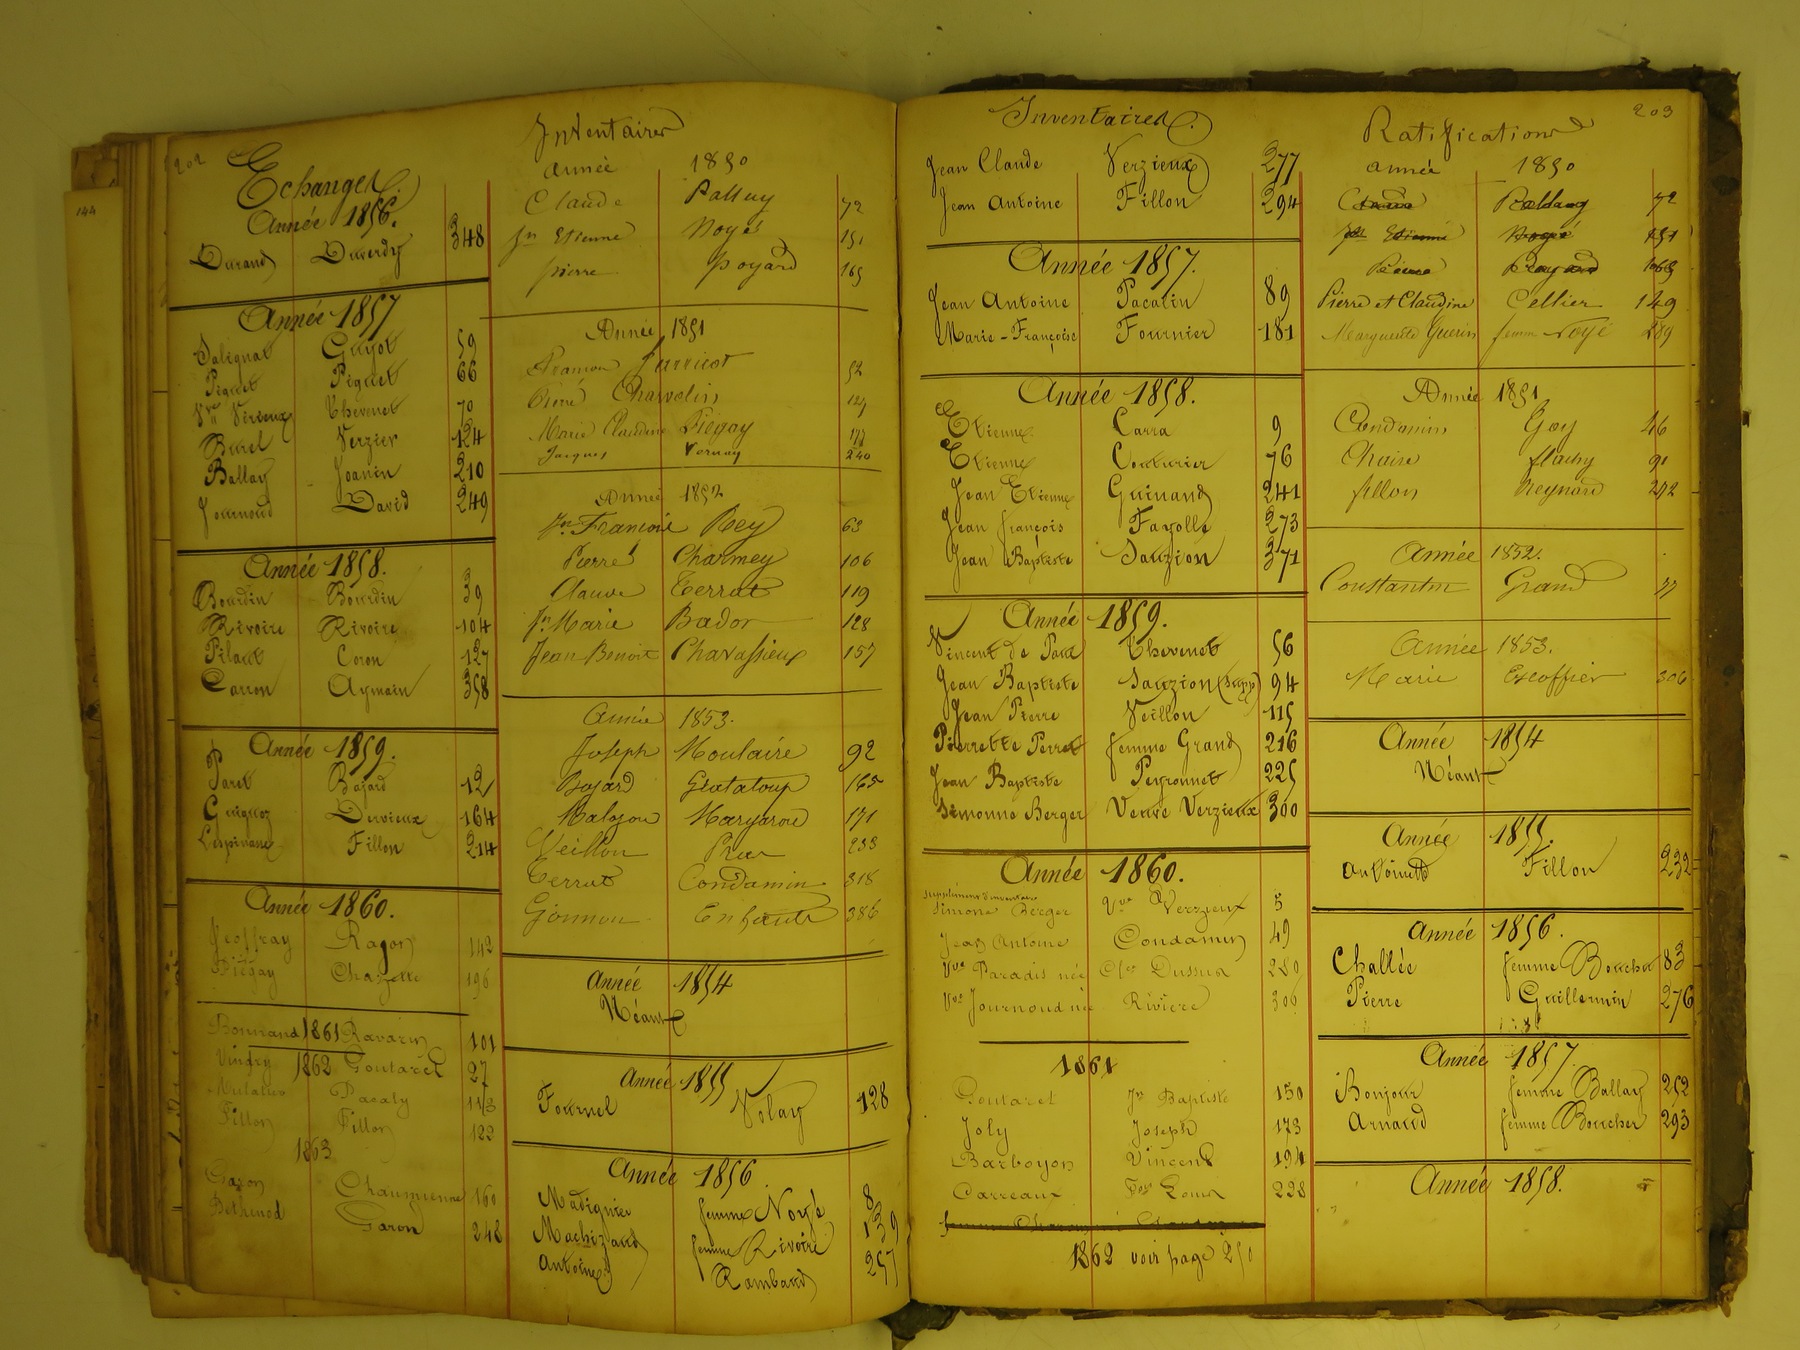 202
Echanges.
Année 1856.
Durand Duverdy 348
Année 1857
Salignat Guyot 59
Piguet Piguet 66
Vve Verieux Thevenet 70
Burel Verzier 124
Ballay Joanin 210
Journoud David 249
Année 1858.
Bourdin Bourdin 39
Rivoire Rivoire 104
Pilaut Coron 127
Carron Aymain 358
Année 1859.
Paret Bajard 12
Guignoz Dervieux 164
Lespinasse Fillon 214
Année 1860.
Jeoffray Ragon 142
Piégay Chazette 196
Bonnand 1861 Ravarin 101
Vindry 1862 Goutaret 27
Pacaly 113
Fillon Fillon 122
1863
Garon Chaumienne 160
Bethenod Garon 248
Inventaires
année 1850
Claude Palluy 72
Jn Etienne Noyé 151
pierre poyard 165
Année 1851
Jarricot 52
Pierre Charvolin 124
Marie Claudine Piégay 177
Jacques Vernay 240
Année 1852
Jn Francois Rey 63
Pierre Charmey 106
Claude Terrat 119
Jn Marie Bador 128
Jean Benoit Chavassieux 157
année 1853.
Joseph Moulaire 92
Bajard Grataloup 165
Malozon Margaron 171
Veillon 233
Terrat Condamin 318
Gonnon 386
Année 1854
Néant
Année 1855
Fournel Volay 128
Année 1856
Madignier femme Noyé 8
Machizaud femme Rivoire 139
Antoine Rambaud 257
Inventaires.
Jean Claude Verzieux 277
Jean Antoine Fillon 294
Année 1857.
Jean Antoine Pacalin 89
Marie-Françoise Fournier 181
Année 1858.
Etienne Carra 9
Etienne Couturier 76
Jean Etienne Guinand 241
Jean françois Fayolle 273
Jean Baptiste Sauzion 371
Année 1859.
Vincent de Paul Thevenet 56
Jean Baptiste Sauzion (Supp) 94
Jean Pierre Veillon 115
Pierrette Perret femme Grand 216
Jean Baptiste Peyronnet 225
Simonne Berger Veuve Verzieux 300
Année 1860.
supplément d'inventaire
Simone Berger Vve Verzieux 5
Jean Antoine Condamin 49
Vve Paradis née Dussur 280
Vve Journoud née Rivière 306
1861
Goutaret Jn Baptiste 150
Joly Joseph 173
Barboyon Vincent 194
Carreaux Louis 228
1862 voir page 250
203
Ratifications
année 1850
Claude 72
Jn Etienne Noyé 151
Pierre Poyard 165
Pierre et Claudine Cellier 149
Marguerite Guerin femme Noyé 289
Année 1851
Condamin Goy 46
Chaise flachy 91
fillon Reynard 272
Année 1852.
Constantin Grand 77
Année 1853.
Marie Escoffier 306
Année 1854
Néant
Année 1855.
Antoinette Fillon 232
Année 1856.
Challée femme Boucher 83
Pierre Guillermin 276
Année 1857.
Bonjour femme Ballay 252
Arnaud femme Boucher 293
Année 1858.
144